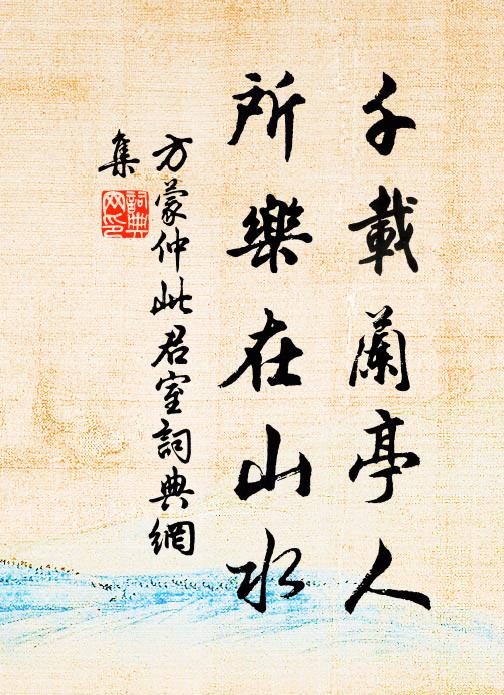 千載蘭亭人
所樂在山水
方蒙仲此君室詞典網
集
詞典网印